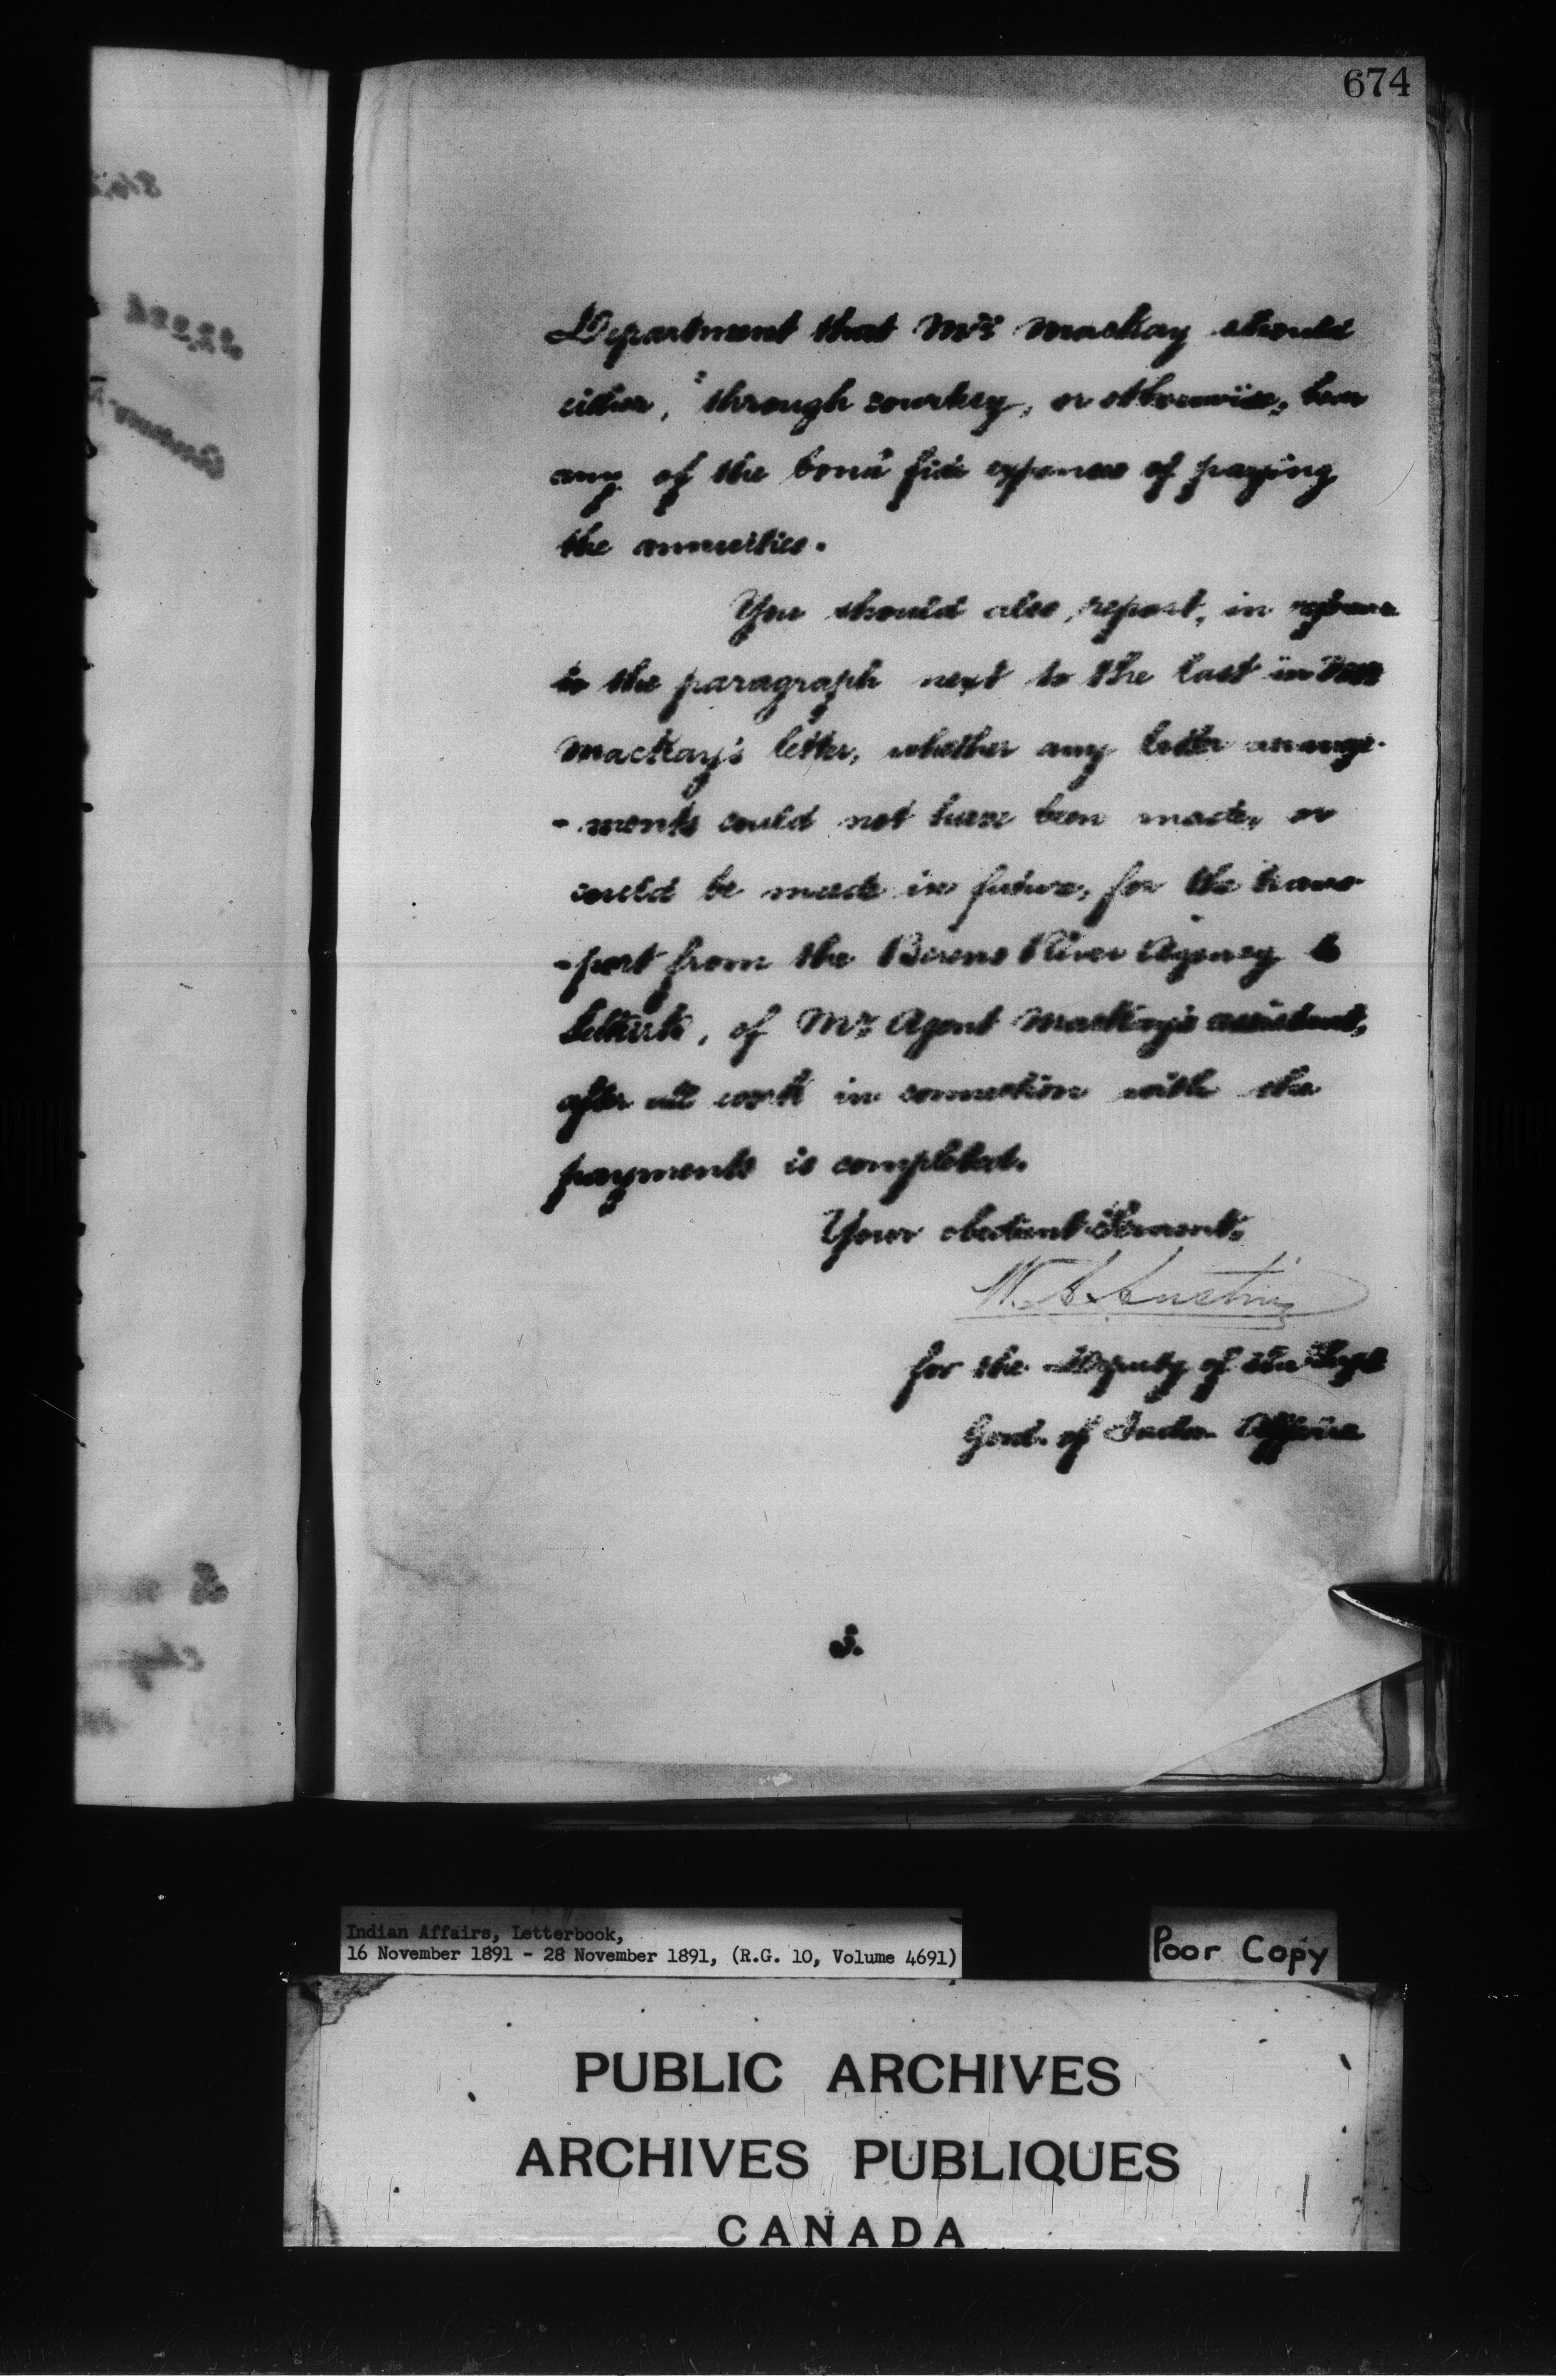 674
Department that Mr. MacKay should
either, "through courtesy, or otherwise, bear
any of the bonâ fide expenses of paying
the annuities.
You should also report, in reference
to the paragraph next to the last in Mr.
MacKay's letter, whether any better arrange-
-ments could not have been made, or
could be made in future, for the trans-
-port from the Berens River Agency to
Selkirk, of Mr. Agent MacKay's assistant,
after all work in connection with the
payments is completed.
Your obedient Servant,
W. A. Austin
for the Deputy of the Supt
Genl. of Indn. Affairs
Indian Affairs, Letterbook,
16 November 1891 - 28 November 1891, (R.G. 10, Volume 4691)
Poor Copy
PUBLIC ARCHIVES
ARCHIVES PUBLIQUES
CANADA